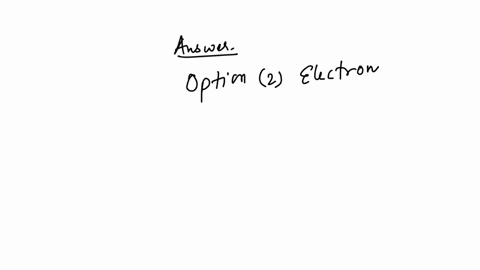 Answer.
Option (2) Electron